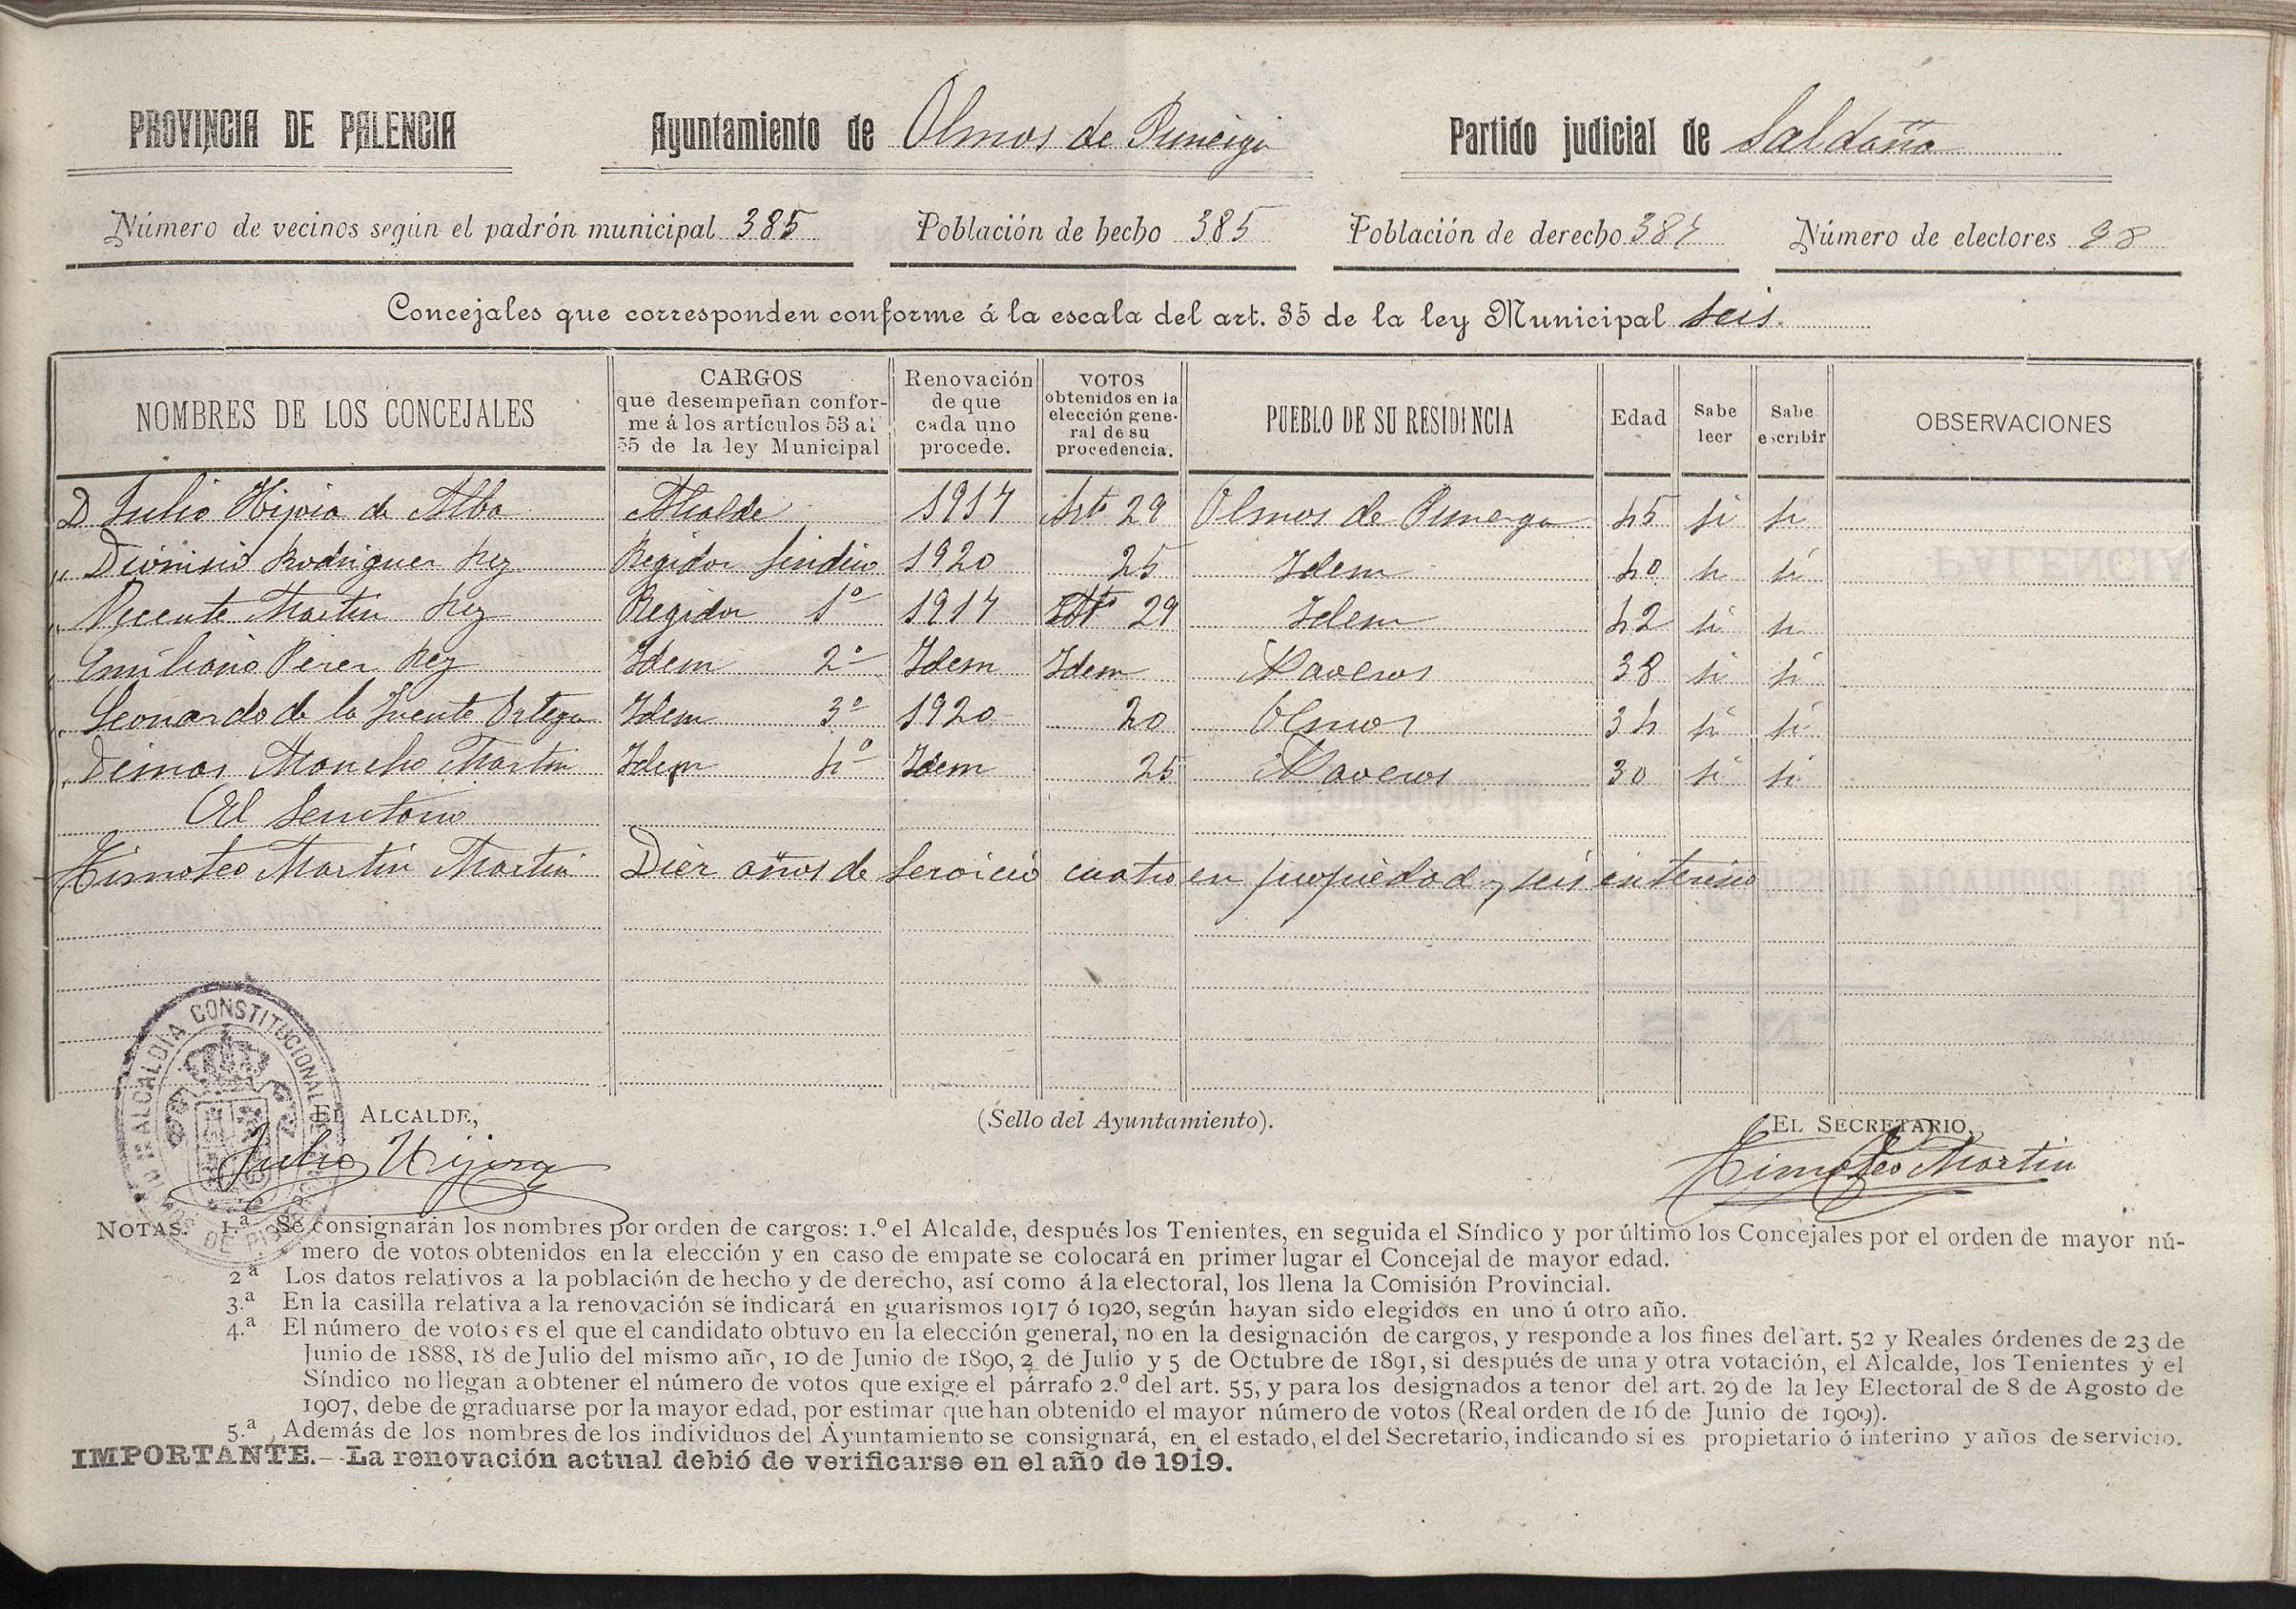 PROVINCIA DE PALENCIA Ayuntamiento de Olmos de Pisuerga Partido judicial de Saldaña
Número de vecinos según el padrón municipal 385 Población de hecho 385 Población de derecho Número de electores 98
Concejales que corresponden conforme á la escala del art. 35 de la ley Municipal seis.
NOMBRES DE LOS CONCEJALES
CARGOS
que desempeñan confor-
me á los artículos 53 al
55 de la ley Municipal
Renovación
de que
cada uno
procede.
VOTOS
obtenidos en la
elección gene-
ral de su
procedencia.
PUEBLO DE SU RESIDENCIA
Edad
Sabe
leer
Sabe
escribir
OBSERVACIONES
D Julio Hijosa de Alba Alcalde 1917 Artº 29 Olmos de Pisuerga 45 si si
" Dionisio Rodriguez Rey Regidor Sindico 1920 25 Idem 40 si si
" Vicente Martin Rey Regidor 1º 1917 Artº 29 Idem 42 si si
" Emiliano Perez Rey Idem 2º Idem Idem Naveros 38 si si
" Leonardo de la Fuente Ortega Idem 3º 1920 20 Olmos 34 si si
" Dimas Moncho Martin Idem 4º Idem 25 Naveros 30 si si
El Secretario
Timoteo Martin Martin Diez años de servicio cuatro en propiedad y seis interino
ALCALDÍA CONSTITUCIONAL
EL ALCALDE, (Sello del Ayuntamiento). EL SECRETARIO,
Julio Hijosa Timoteo Martin
NOTAS. 1.ª Se consignarán los nombres por orden de cargos: 1.º el Alcalde, después los Tenientes, en seguida el Síndico y por último los Concejales por el orden de mayor nú-
mero de votos obtenidos en la elección y en caso de empate se colocará en primer lugar el Concejal de mayor edad.
2ª Los datos relativos a la población de hecho y de derecho, así como á la electoral, los llena la Comisión Provincial.
3.ª En la casilla relativa a la renovación se indicará en guarismos 1917 ó 1920, según hayan sido elegidos en uno ú otro año.
4.ª El número de votos es el que el candidato obtuvo en la elección general, no en la designación de cargos, y responde a los fines del art. 52 y Reales órdenes de 23 de
Junio de 1888, 18 de Julio del mismo año, 10 de Junio de 1890, 2 de Julio y 5 de Octubre de 1891, si después de una y otra votación, el Alcalde, los Tenientes y el
Síndico no llegan a obtener el número de votos que exige el párrafo 2.º del art. 55, y para los designados a tenor del art. 29 de la ley Electoral de 8 de Agosto de
1907, debe de graduarse por la mayor edad, por estimar que han obtenido el mayor número de votos (Real orden de 16 de Junio de 1909).
5.ª Además de los nombres de los individuos del Ayuntamiento se consignará, en el estado, el del Secretario, indicando si es propietario ó interino y años de servicio.
IMPORTANTE.—La renovación actual debió de verificarse en el año de 1919.